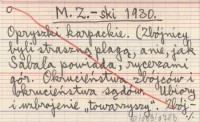 M. Z.-ski 1930.
Opryszki karpackie. (Zbójnicy
byli straszną plagą, a nie, jak
Sabała powiada, rycerzami
gór. Okrucieństwa zbójców i
okrucieństwa sądów. Ubiory
i uzbrojenie „towarzyszy”. Zbój-